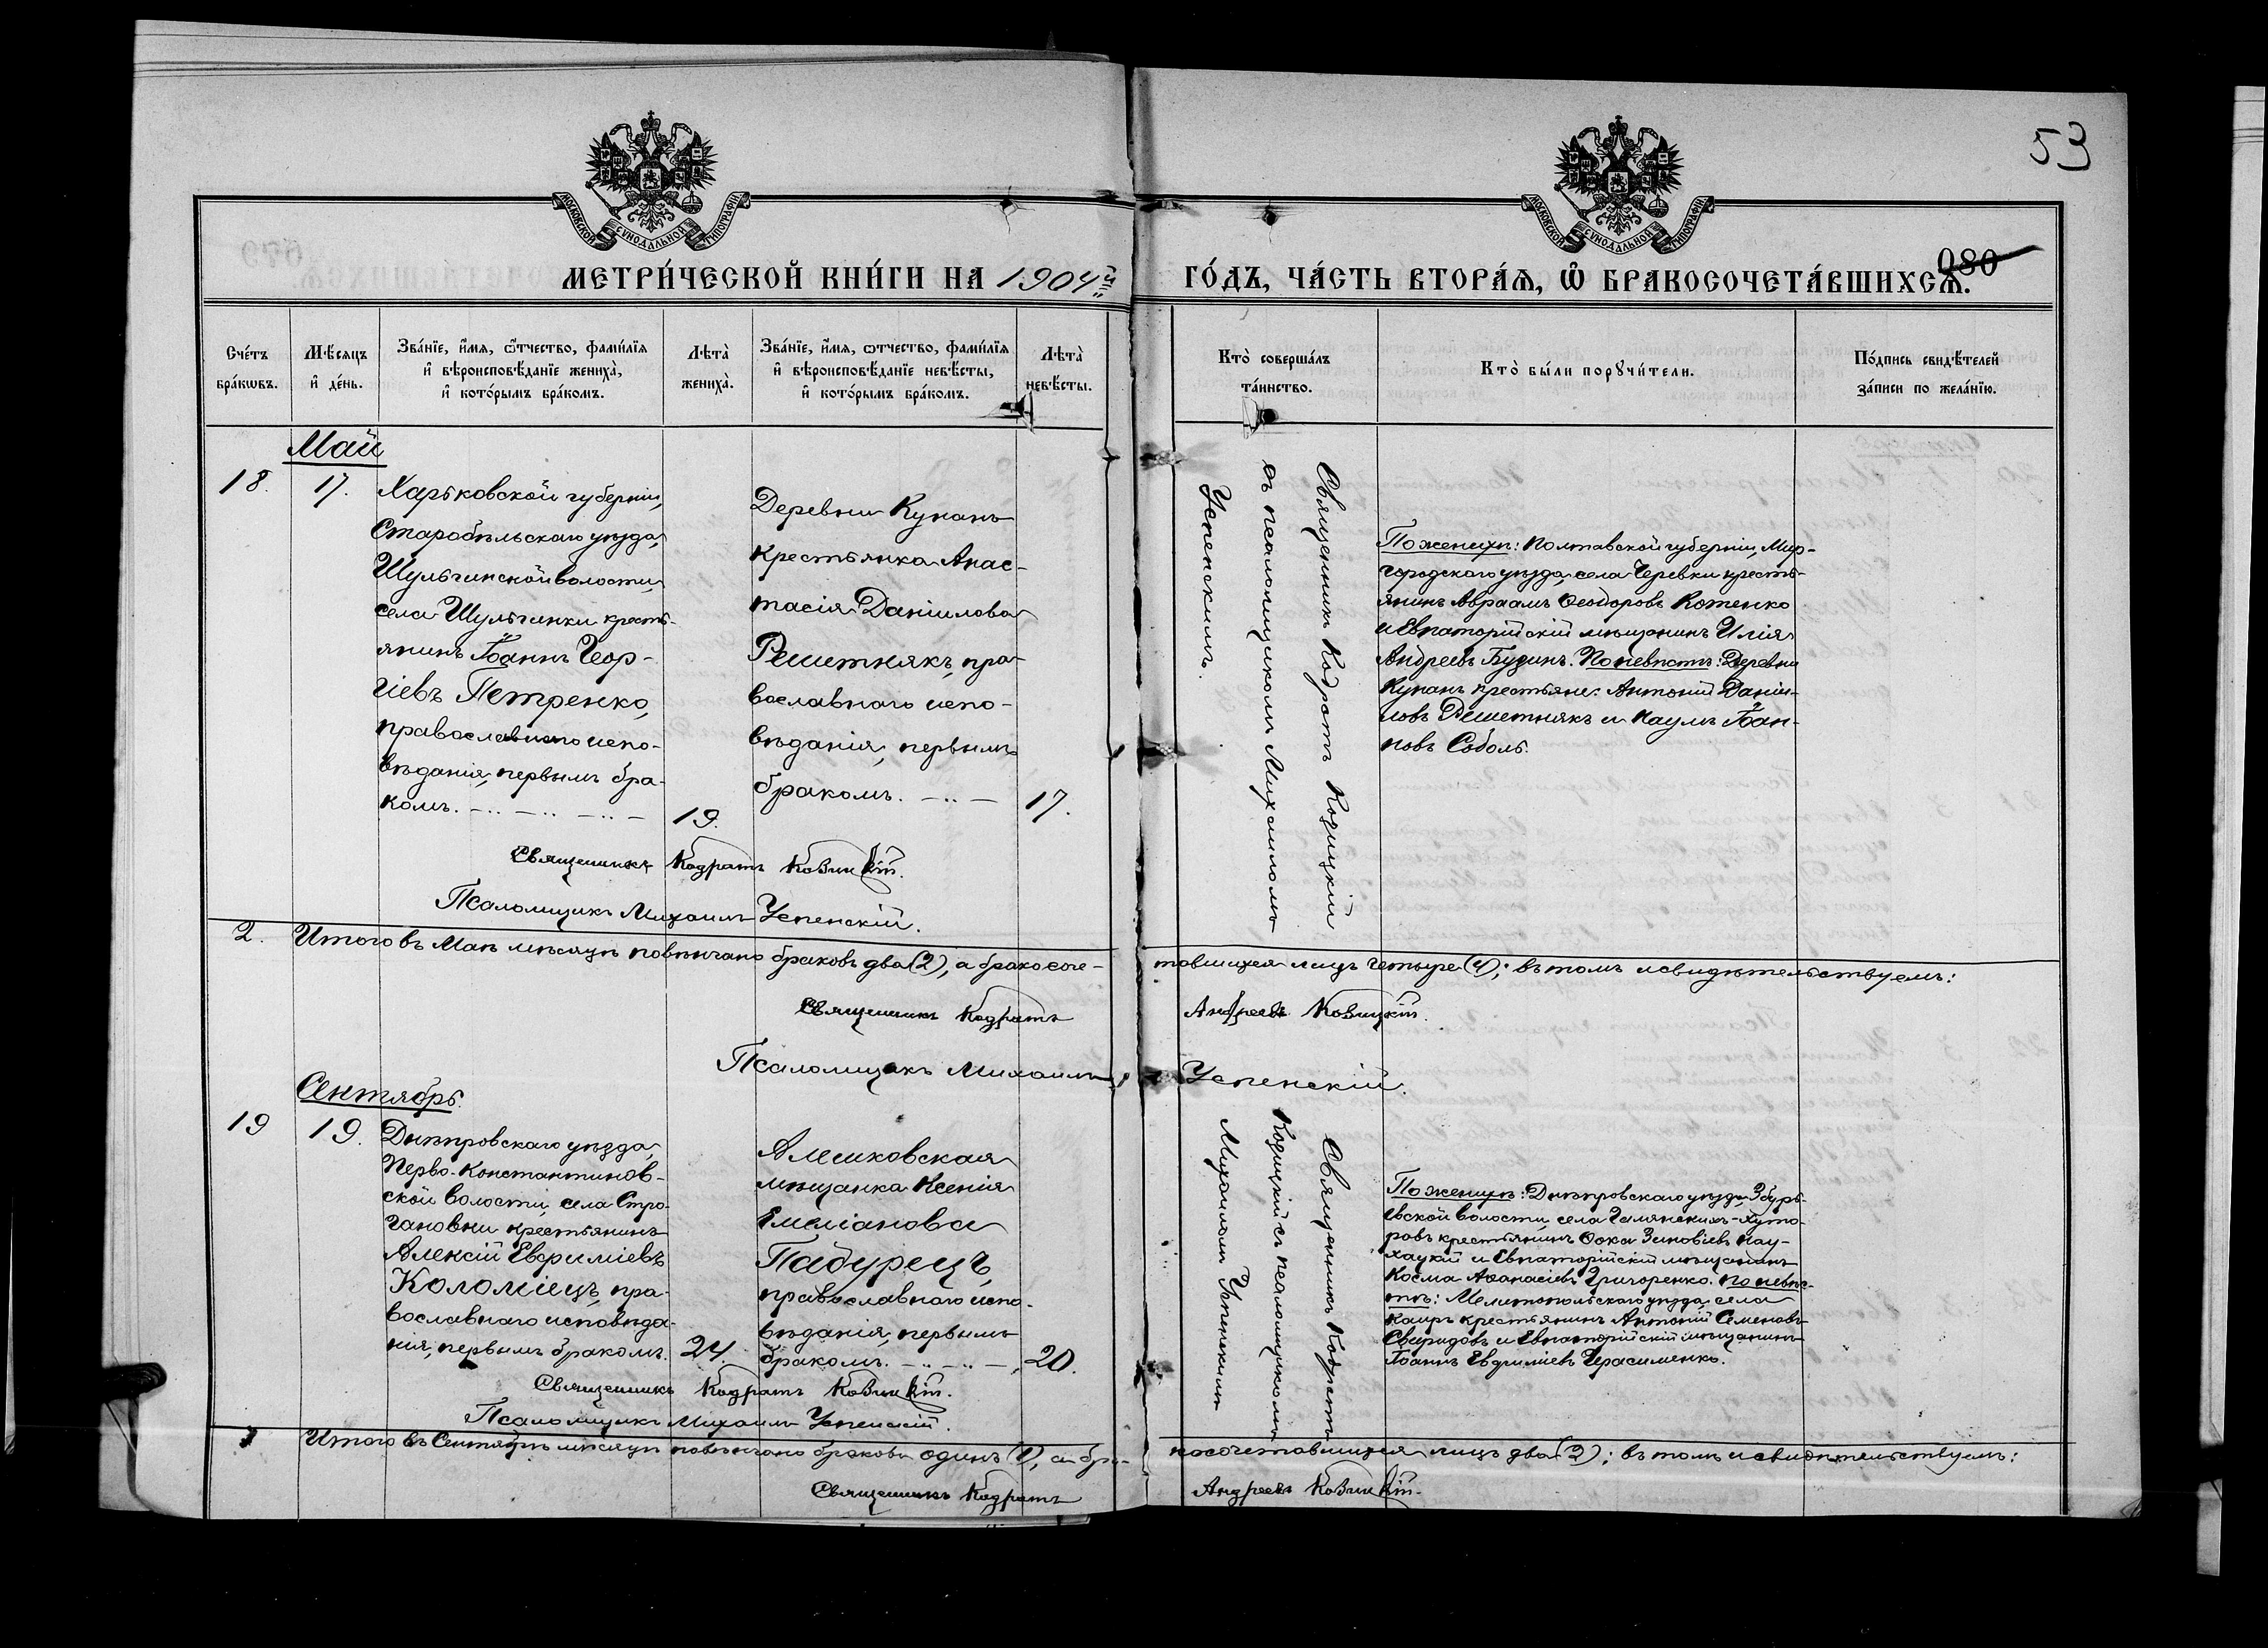 53
080
МОСКОВСКОЙ СѴНОДАЛЬНОЙ ТИПОГРАФІИ
МОСКОВСКОЙ СѴНОДАЛЬНОЙ ТИПОГРАФІИ
МЕТРИ́ЧЕСКОЙ КНИ́ГИ НА 1904й
ГО́ДЪ, ЧА́СТЬ ВТОРА́Я, Ѽ БРАКОСОЧЕТА́ВШИХСѦ.
Сче́тъ
бра́кѡвъ.
Мѣ́сяцъ
и҆ де́нь.
Зва́нїе, и҆́мя, ѻ҆́тчество, фами́лїя
и҆ вѣроисповѣ́данїе жениха̀,
и҆ кото́рымъ бра́комъ.
Лѣта̀
жениха̀.
Зва́нїе, и҆́мя, ѻ҆́тчество, фами́лїя
и҆ вѣроисповѣ́данїе невѣ́сты,
и҆ кото́рымъ бра́комъ.
Лѣта̀
невѣ́сты.
Кто̀ соверша́лъ
та́инство.
Кто̀ бы́ли порꙋчи́тели.
По́дпись свидѣ́телей
за́писи по жела́нїю.
Май
18.
17.
Харьковской губерніи,
Старобѣльскаго уѣзда,
Шульгинской волости,
села Шульгинки кресть-
янинъ Іоаннъ Геор-
гіевъ Петренко,
православнаго испо-
вѣданія, первымъ бра-
комъ.
19.
Деревни Кунанъ
крестьянка Анас-
тасія Даніилова
Решетнякъ, пра-
вославнаго испо-
вѣданія, первымъ
бракомъ.
17.
Священникъ Кодратъ Козицкій
съ псаломщикомъ Михаиломъ
Успенскимъ.
По женихѣ: Полтавской губерніи, Мир-
городскаго уѣзда, села Черевки кресть-
янинъ Авраамъ Ѳеодоровъ Котенко
и Евпаторійскій мѣщанинъ Илія
Андреевъ Бузинъ. По невѣстѣ: Деревни
Кунанъ крестьяне: Антоній Даніи-
ловъ Решетнякъ и Наумъ Іоан-
новъ Соболь.
Священникъ Кодратъ Козицкій.
Псаломщикъ Михаилъ Успенскій.
2. Итого въ Маѣ мѣсяцѣ повѣнчано браковъ два (2), а бракосоче-
тавшихся лицъ четыре (4); въ томъ и свидѣтельствуемъ:
Священникъ Кодратъ Андреевъ Козицкій.
Псаломщикъ Михаилъ Успенскій.
Сентябрь.
19
19.
Днѣпровскаго уѣзда,
Перво-Константинов-
ской волости, села Стро-
гановки крестьянинъ
Алексій Евѳиміевъ
Коломіецъ, пра-
вославнаго исповѣда-
нія, первымъ бракомъ.
24.
Алешковская
мѣщанка Ксенія
Емеліанова
Падурецъ,
православнаго испо-
вѣданія, первымъ
бракомъ.
20.
Священникъ Кодратъ
Козицкій съ псаломщикомъ
Михаиломъ Успенскимъ
По женихѣ: Днѣпровскаго уѣзда, Збурь-
евской волости, села Чалянскихъ-Хуто-
ровъ крестьянинъ Ѳока Зиновіевъ
и Евпаторійскій мѣщанинъ
Косма Аѳанасіевъ Григоренко. По невѣс-
тѣ: Мелитопольскаго уѣзда, села
Каиръ крестьянинъ Антоній Семеновъ
Свиридовъ и Евпаторійскій мѣщанинъ
Іоаннъ Евѳиміевъ Герасименко.
Священникъ Кодратъ Козицкій.
Псаломщикъ Михаилъ Успенскій.
1 Итого въ Сентябрѣ мѣсяцѣ повѣнчано браковъ одинъ (1), а бра-
косочетавшихся лицъ два (2); въ томъ и свидѣтельствуемъ:
Священникъ Кодратъ Андреевъ Козицкій.